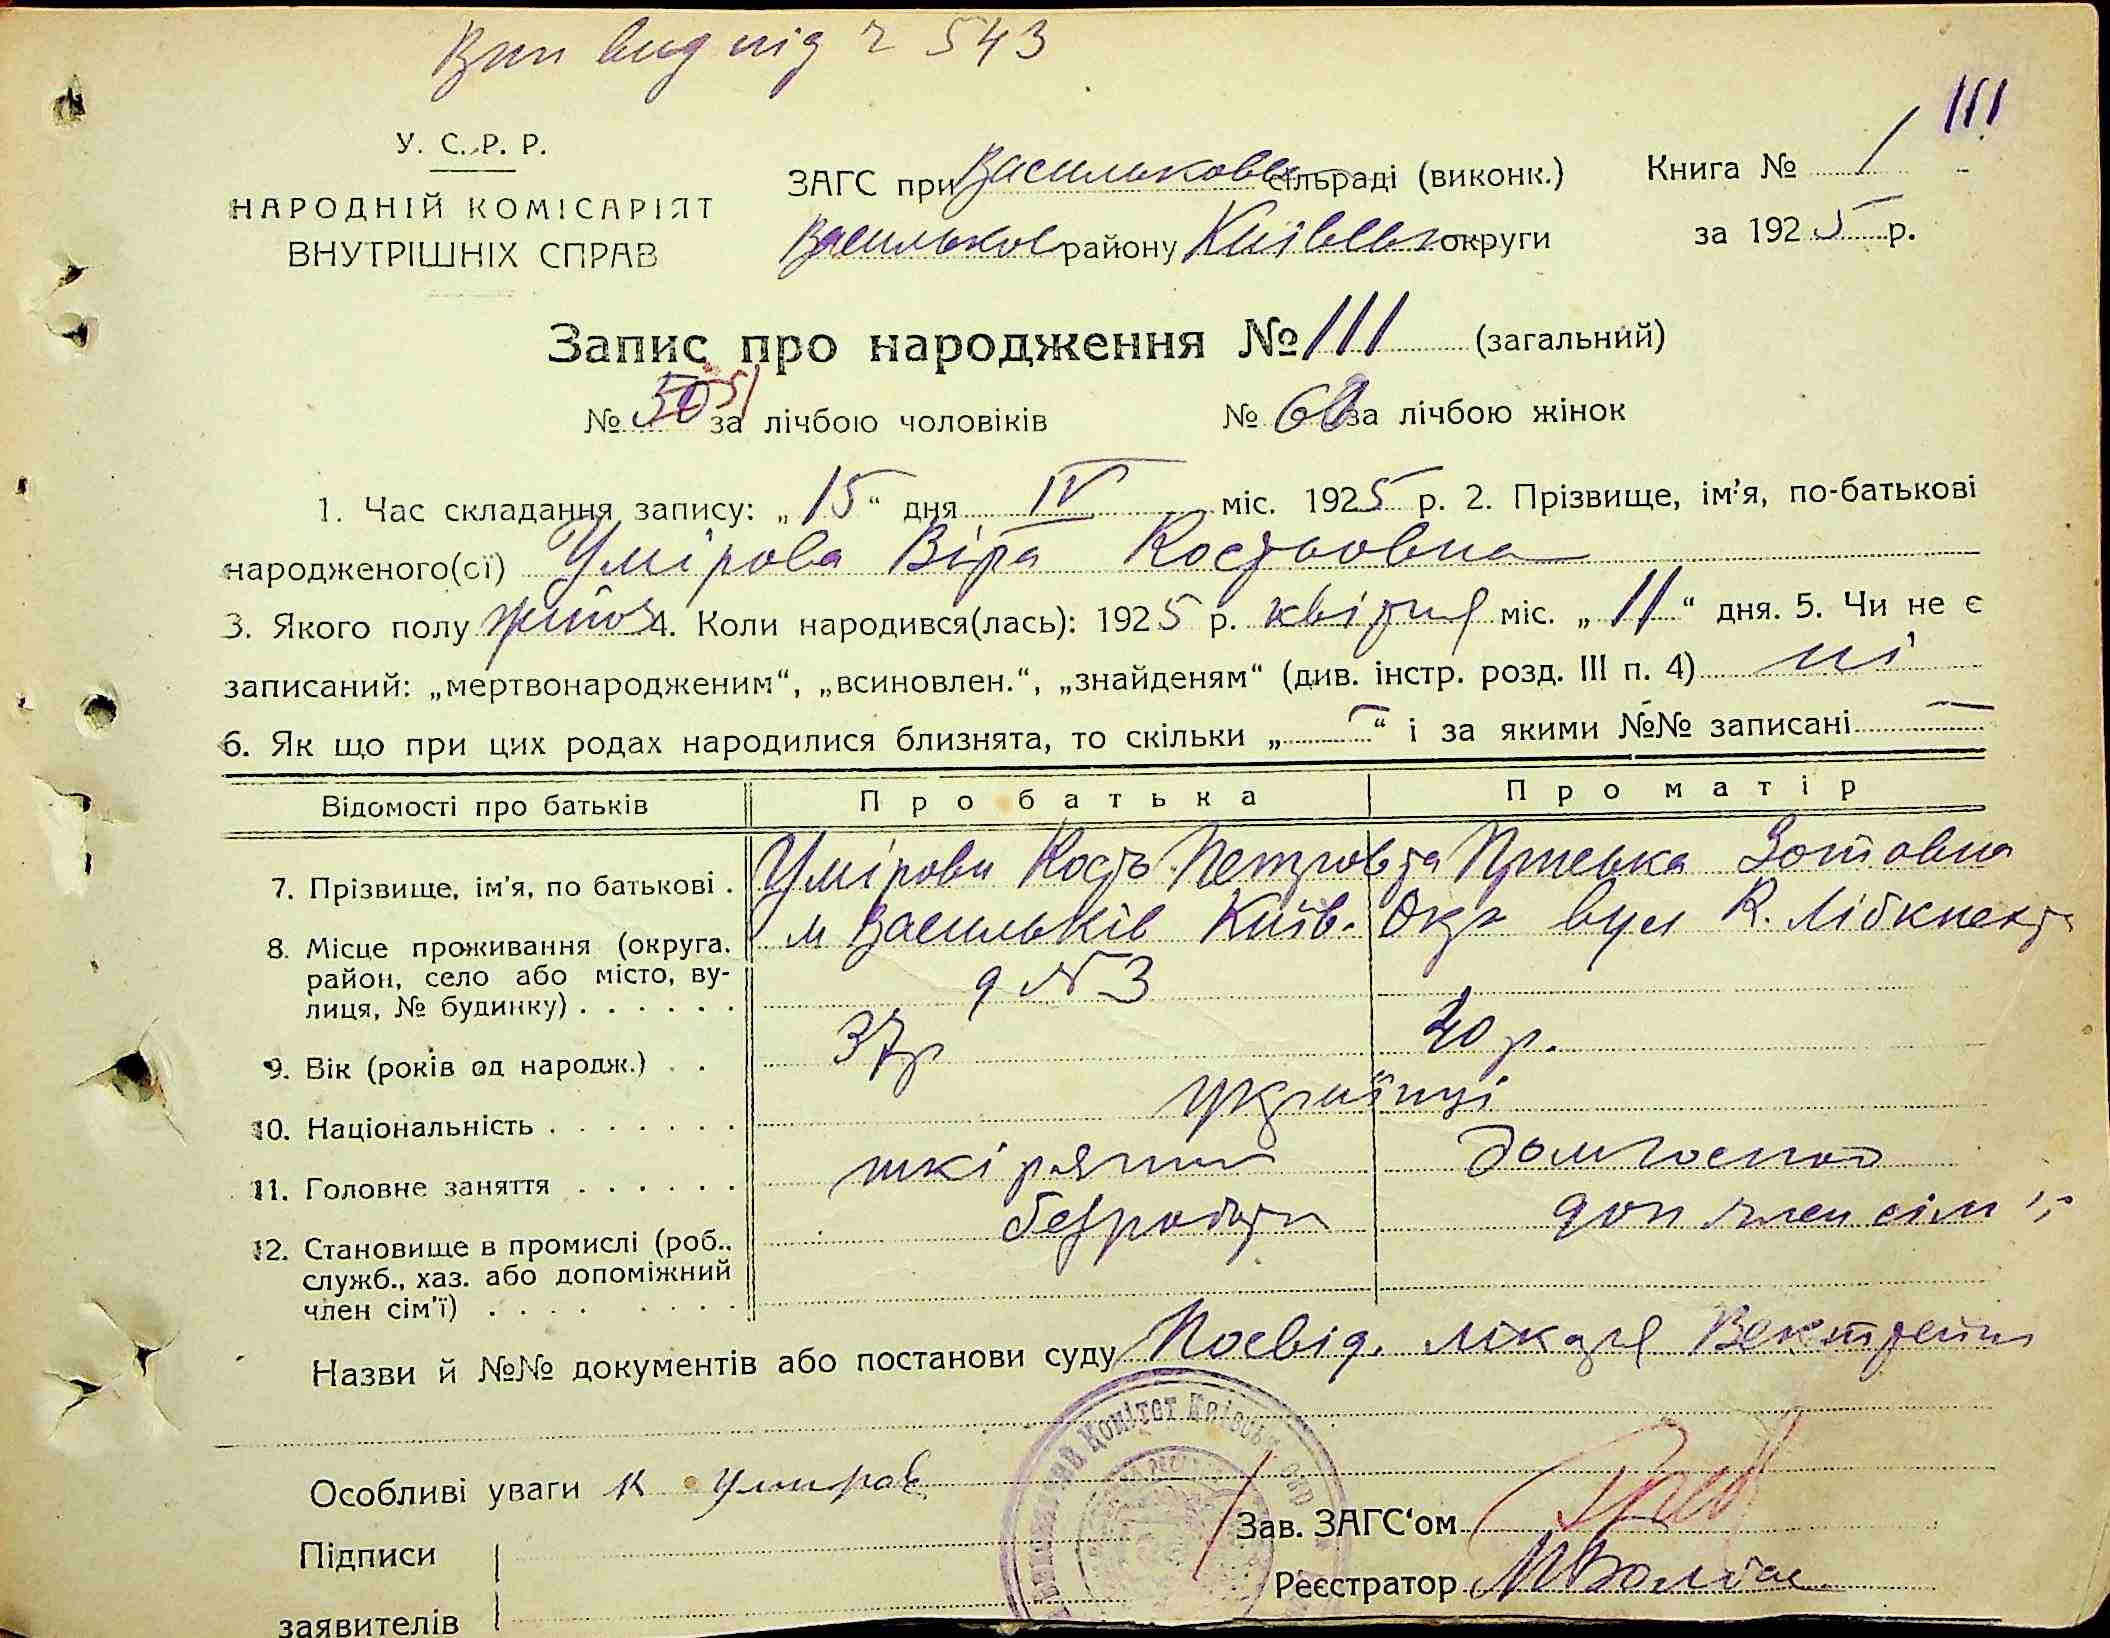 Вип вид під ч 543
III
У. С. Р. Р.
НАРОДНІЙ КОМІСАРІЯТ
ВНУТРІШНІХ СПРАВ
ЗАГС при Васильковск сільраді (виконк.)
Васильков району Київськ округи
Книга № 1
за 1925 р.
Запис про народження № 111 (загальний)
№ 50 51 за лічбою чоловіків № 60 за лічбою жінок
1. Час складання запису: „15“ дня IV міс. 1925 р. 2. Прізвище, ім'я, по-батькові
народженого(сї) Умірова Віра Костьовна
3. Якого полу жіноч 4. Коли народився(лась): 1925 р. квітня міс. „11“ дня. 5. Чи не є
записаний: „мертвонародженим“, „всиновлен.“, „знайденям“ (див. інстр. розд. III п. 4) ні
6. Як що при цих родах народилися близнята, то скільки „—“ і за якими №№ записані —
Відомості про батьків Про батька Про матір
7. Прізвище, ім'я, по батькові . Умірови Кость Петров та Пріська Зотовна
8. Місце проживання (округа, район, село або місто, вулиця, № будинку) . . . . . . м Васильків Київ. Окр вул К. Лібкнехта
д № 3
9. Вік (років од народж.) . . 37 р 40 р.
10. Національність . . . . . . . українці
11. Головне заняття . . . . . . шкіряник домгоспод
12. Становище в промислі (роб., служб., хаз. або допоміжний член сім'ї) . . . . . . . . безробітн доп член сім'ї
Назви й №№ документів або постанови суду Посвід. лікаря
Особливі уваги К Умиров
Зав. ЗАГС'ом
Підписи
заявителів
Реєстратор